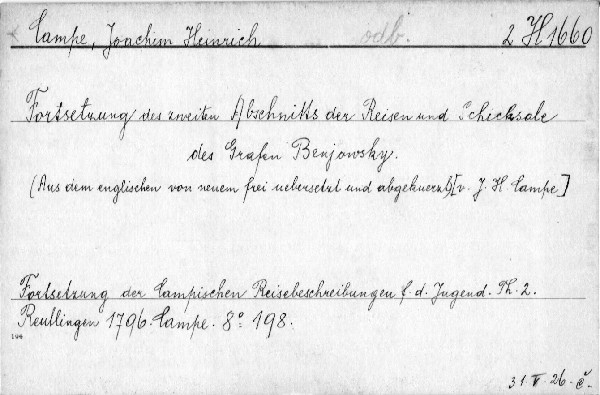 Campe, Joachim Heinrich odb. 2 H 1660
Fortsetzung des zweiten Abschnitts der Reisen und Schicksale
des Grafen Benjowsky.
(Aus dem englischen von neuem frei uebersetzt und abgekuerzt) [v. J. H. Campe]
Fortsetzung der Campischen Reisebeschreibungen f. d. Jugend. Th. 2.
Reutlingen 1796. Campe. 8° 198.
31. V. 26. č.